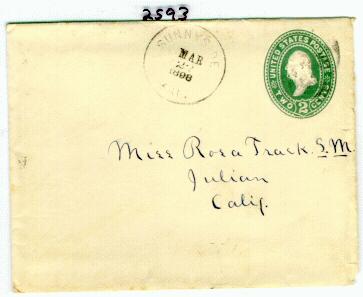 2593
SUNNYSIDE
MAR
1898
CAL.
UNITED STATES POSTAGE
TWO 2 CENTS
Miss Rosa Track. S.M.
Julian
Calif.